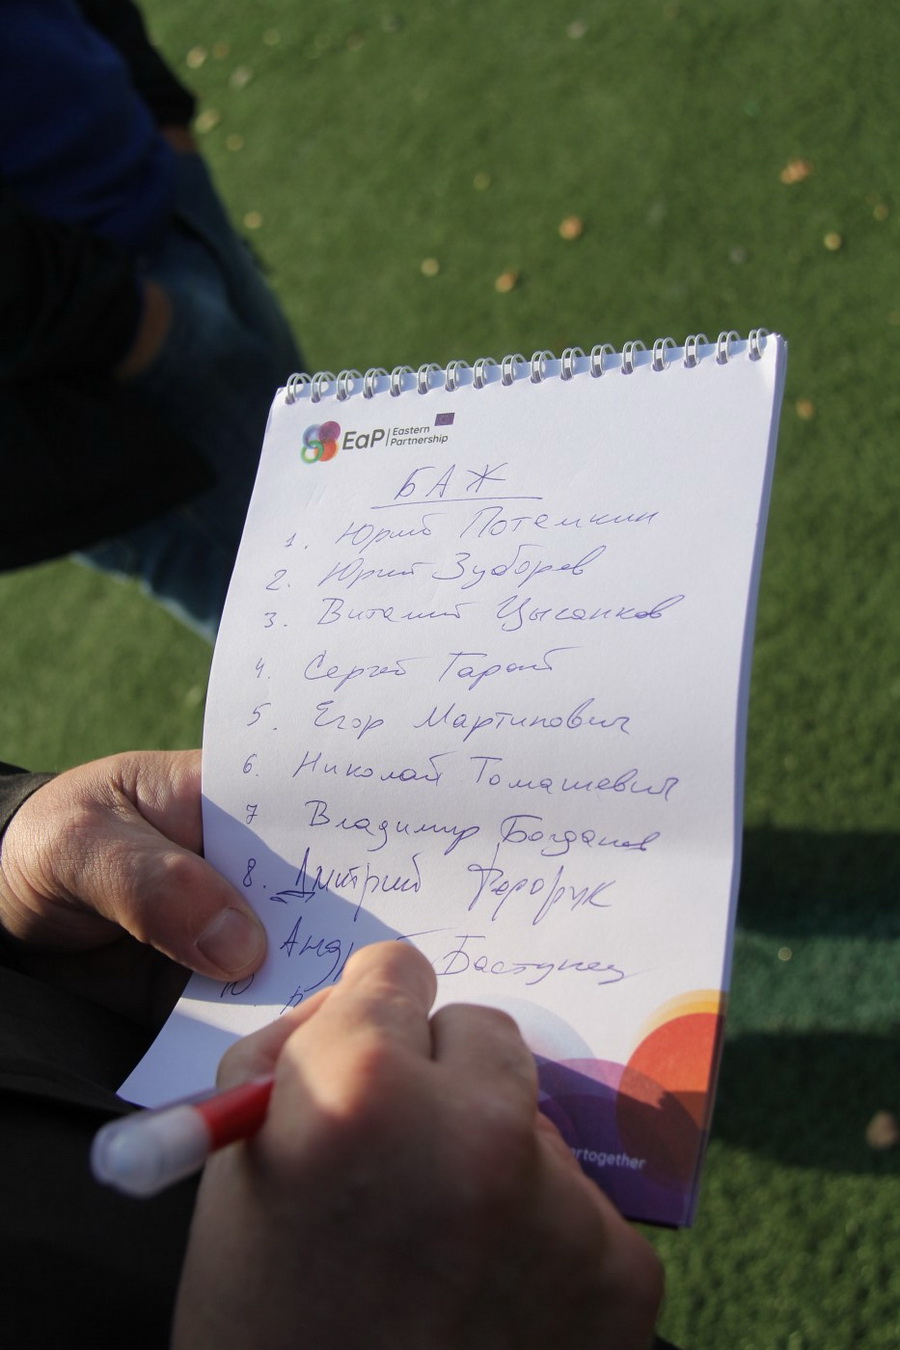 EaP | Eastern Partnership
БАЖ
1. Юрий Потемкин
2. Юрий Зуборев
3. Виталий Цыганков
4. Сергей
5. Егор Мартинович
6. Николай Томашевич
7 Владимир Богданов
8. Дмитрий
Бастунец
10.
together